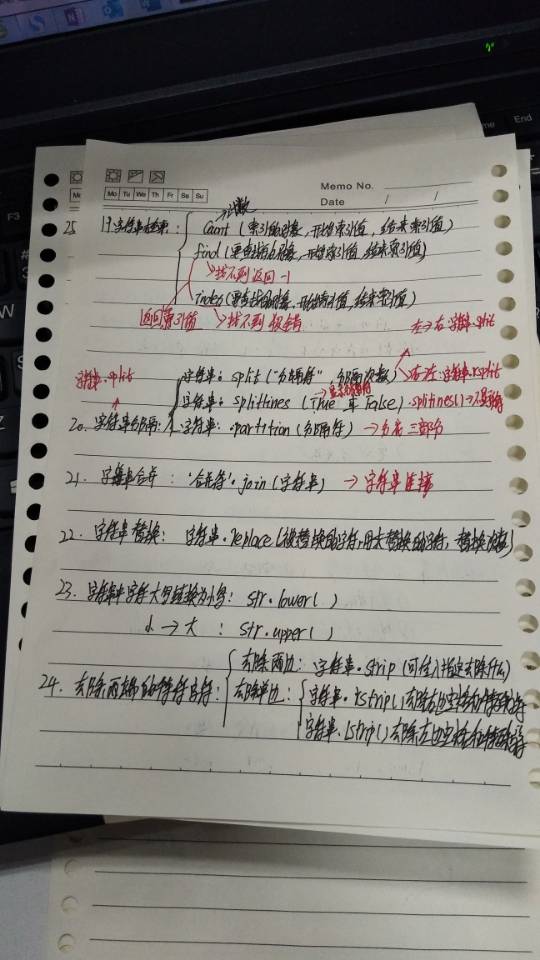 Memo No.
Mo Tu We Th Fr Sa Su
Date / /
→计数
Count (索引的对象,开始索引值,结束索引值)
25 19.字符串检索: find (要查找的对象,开始索引值,结束索引值)
→找不到返回-1
index(要查找的对象,开始索引值,结束索引值)
返回索引值 →找不到 报错
左→右 字符串.split
字符串.split
字符串.split("分隔符",分隔次数) →右左 字符串.rsplit
字符串.splitlines (True 或 False) .splitlines()→不
20.字符串分隔: 字符串.partition(分隔符) →分为三部分
21.字符串合并: '合并符'.join(字符串) →字符串连接
22.字符串替换: 字符串.replace(被替换的字符,用来替换的字符,替换次数)
23.字符串中字符大写转换为小写: str.lower( )
小→大 : str.upper( )
去除两边: 字符串.strip(可传入指定去除什么)
24.去除两端的 去除单边: 字符串.rstrip()去除右边空格和特殊字符
字符串.lstrip()去除左边空格和特殊字符
F3
End